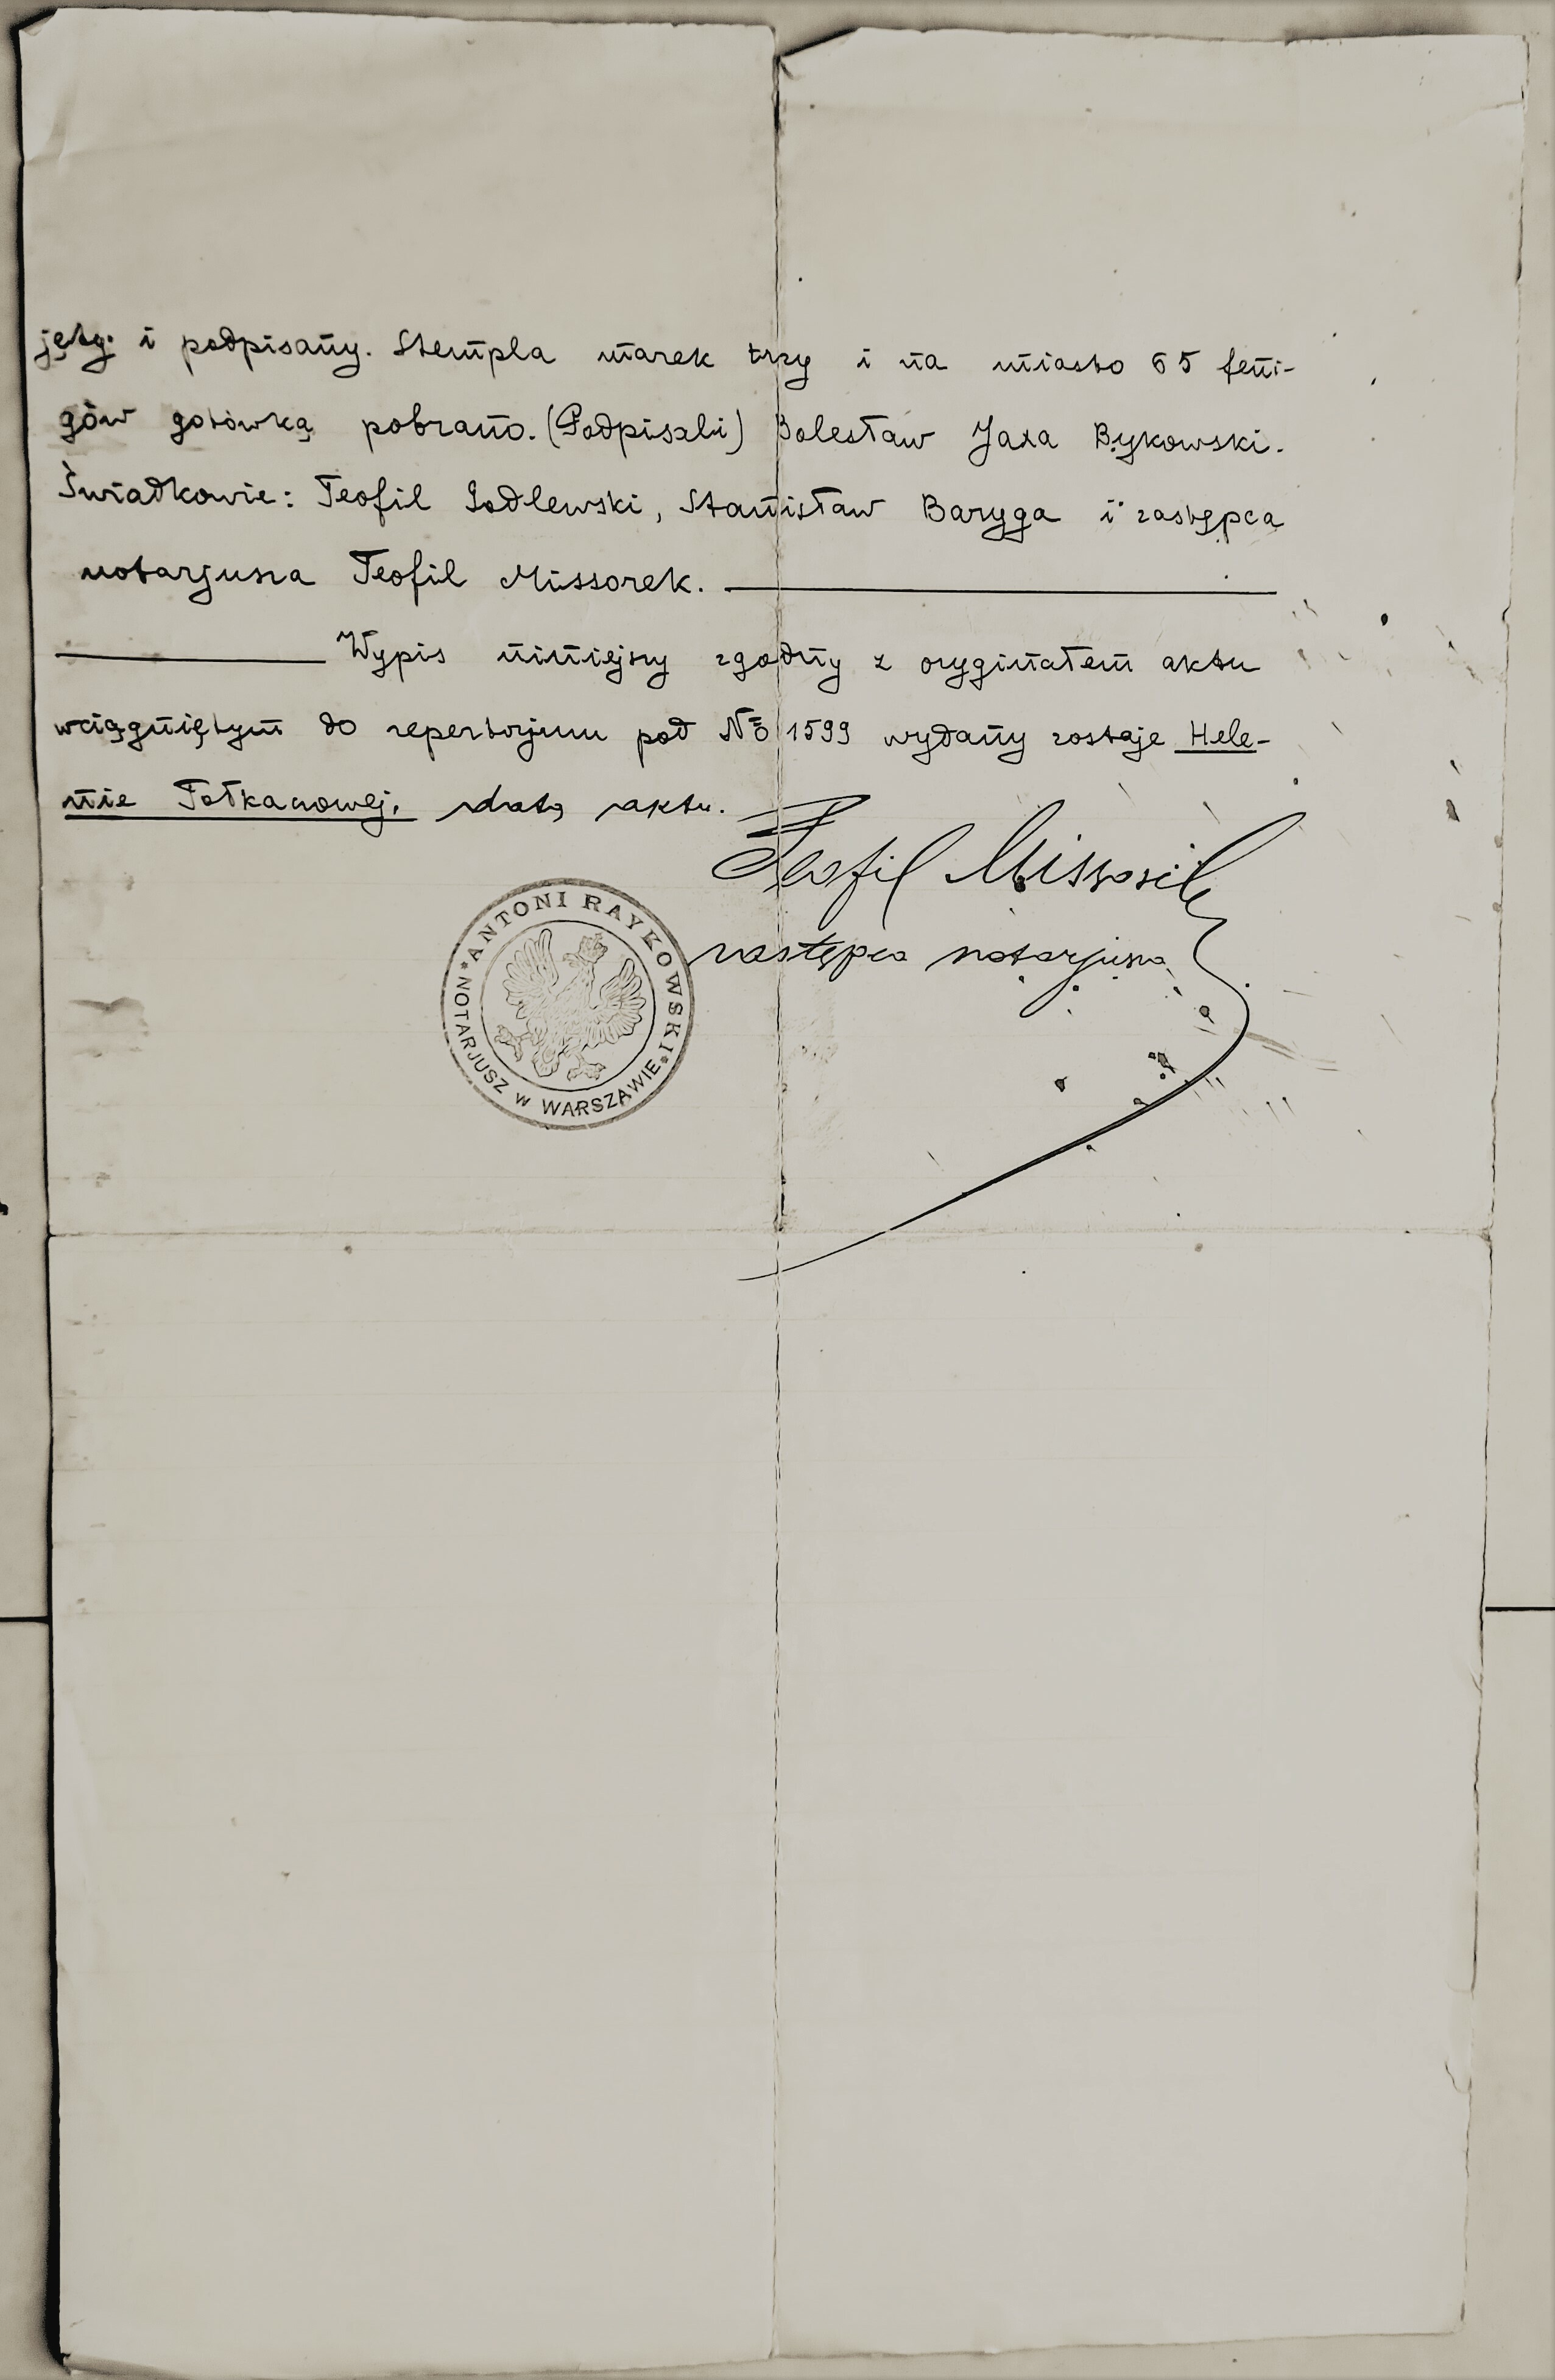 jęty i podpisany. Stempla marek trzy i na miasto 65 feni-
gów gotówką pobrano. (Podpisali) Bolesław Jaxa Bykowski.
Świadkowie: Teofil Godlewski, Stanisław Baryga i zastępca
notarjusza Teofil Missorek.
Wypis niniejszy zgodny z oryginałem aktu
wciągniętym do repertorjum pod № 1599 wydany zostaje Hele-
nie datą aktu.
Teofil Missorek
zastępca notarjusza
*ANTONI RAYKOWSKI*
NOTARJUSZ w WARSZAWIE